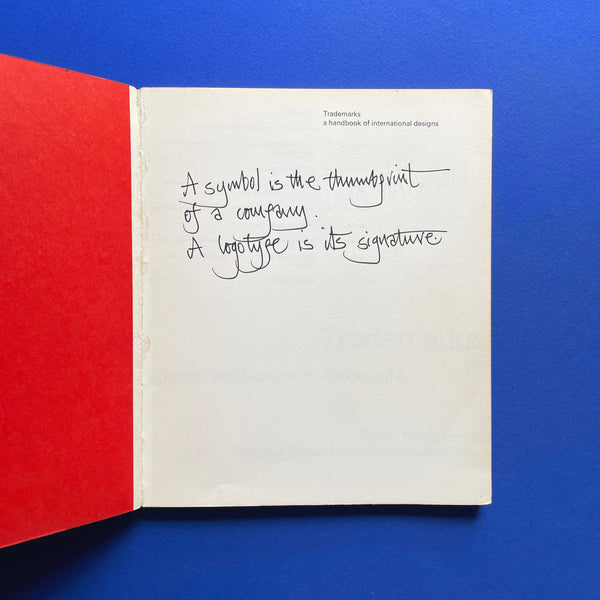 Trademarks
a handbook of international designs
A symbol is the thumbprint
of a company.
A logotype is its signature.
Trademarks